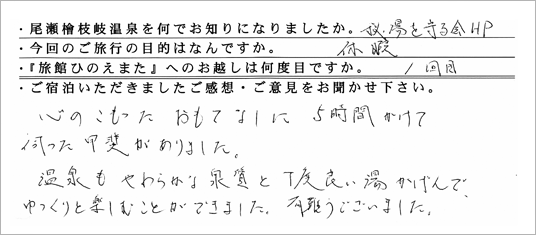 ・尾瀬檜枝岐温泉を何でお知りになりましたか。秘湯を守る会HP
・今回のご旅行の目的はなんですか。 休暇
・『旅館ひのえまた』へのお越しは何度目ですか。 1回目
・ご宿泊いただきましたご感想・ご意見をお聞かせ下さい。
心のこもった おもてなしに 5時間かけて
伺った甲斐がありました。
温泉も やわらかな泉質と 丁度良い湯かげんで、
ゆっくりと楽しむことができました。有難うございました。